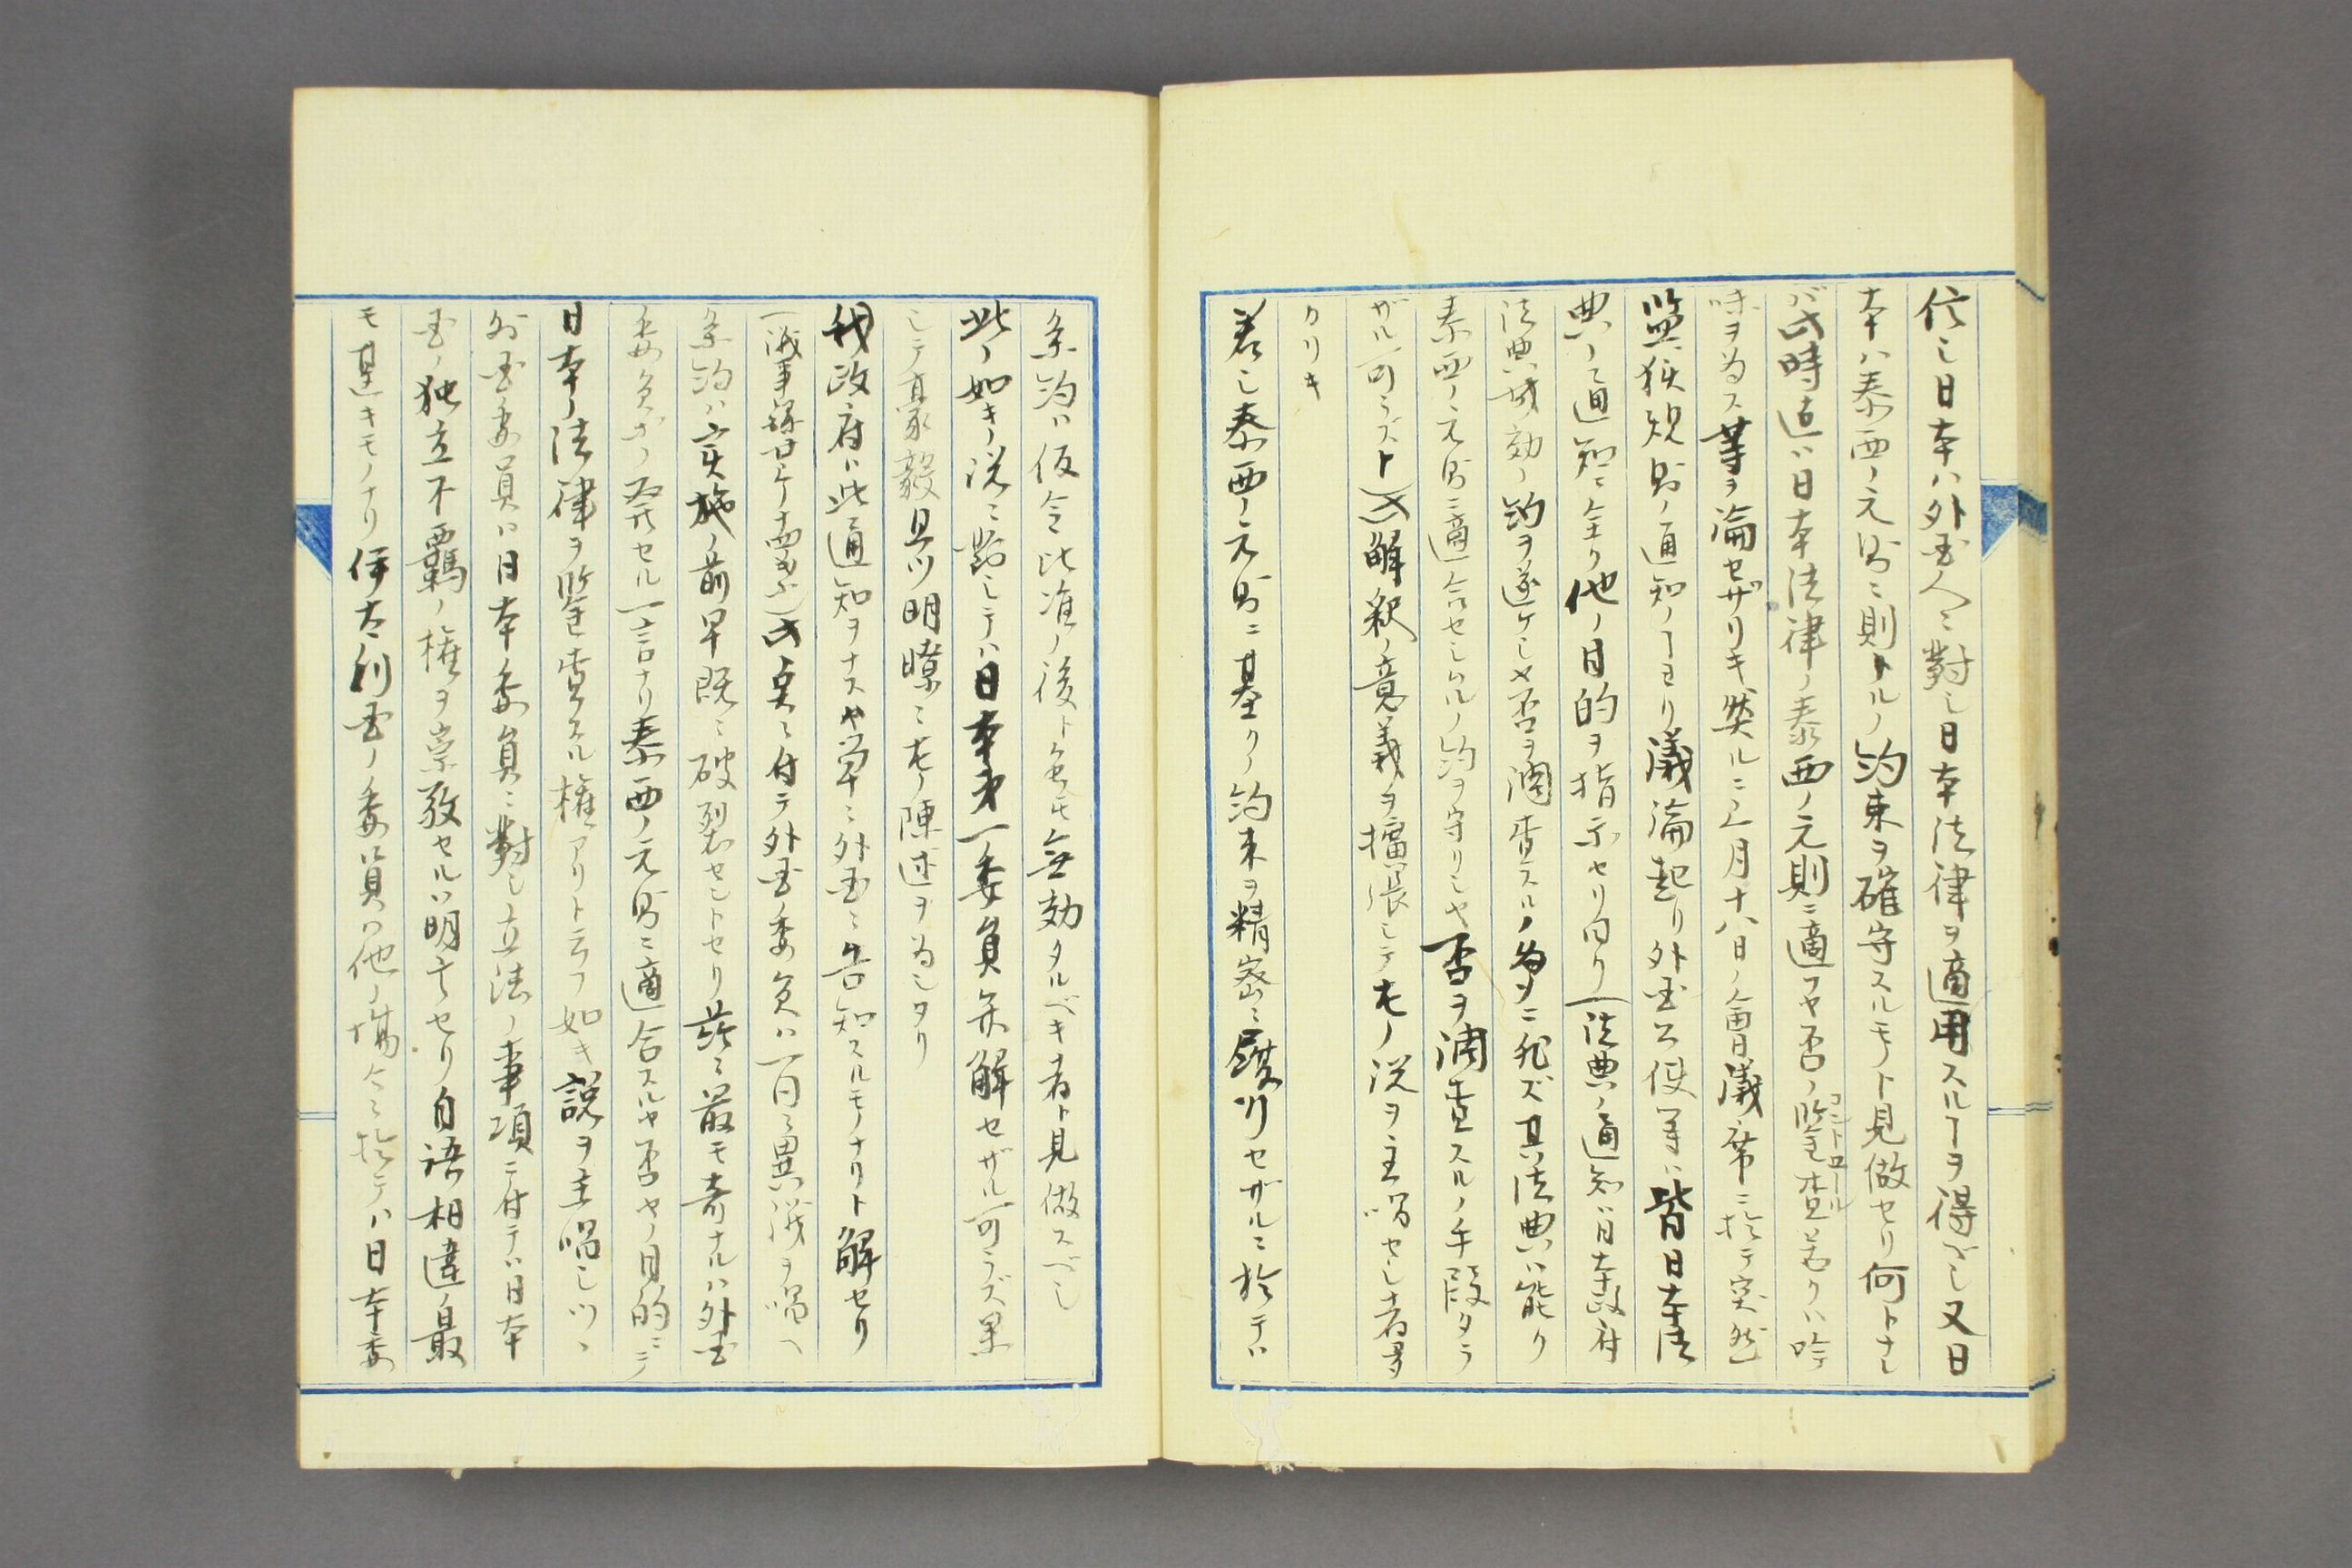 信シ日本ハ外国人ニ對シ日本法律ヲ適用スルヿヲ得ベシ又日
本ハ泰西ノ元則ニ則トルノ約束ヲ確守スルモノト見做セリ何トナレ
バ此時迄ハ日本法律ノ泰西ノ元則ニ適フヤ否ノ監査若クハ吟
コントロール
味ヲ為ス等ヲ論セザリキ然ルニ二月十八日ノ會議席ニ於テ突然
監獄規則ノ通知ノヿヨリ議論起リ外国公使等ハ皆日本法
典ノ通知ニ全ク他ノ目的ヲ指示セリ曰ク「法典ノ通知ハ日本政府
法典成効ノ約ヲ遂ケシメ否ヲ調査スルノ為メニ非ズ其法典ハ能ク
泰西ノ元則ニ適合セシムルノ約ヲ守リシヤ否ヲ調査スルノ手段タラ
ザル可ラズト此解釈ノ意義ヲ擴張シテ左ノ説ヲ主唱セシ者多
カリキ
若シ泰西ノ元則ニ基クノ約束ヲ精密ニ履行セザルニ於テハ
条約ハ仮令批准ノ後ト雖モ無効タルベキ者ト見做スベシ
此ノ如キノ説ニ對シテハ日本第一委員亦解セザル可ラズ果
シテ豪毅且ツ明瞭ニ左ノ陳述ヲ為シタリ
我政府ハ此通知ヲナスヤ単ニ外国ニ告知スルモノナリト解セリ
(議事録廿ケ十四ページ)此点ニ付テ外国委員ハ一同ニ異議ヲ唱ヘ
条約ハ実施ノ前早既ニ破裂セントセリ茲ニ最モ奇ナルハ外国
委員ガノ発セル一言ナリ泰西ノ元則ニ適合スルヤ否ヤノ目的ニテ
日本ノ法律ヲ監査スル権アリト云フ如キ説ヲ主唱シツヽ
外国委員ハ日本委員ニ對シ立法ノ事項ニ付テハ日本
国ノ独立不羈ノ権ヲ崇敬セルハ明言セリ自語相違ノ最
モ甚キモノナリ伊太利国ノ委員ハ他ノ場合ニ於テハ日本委